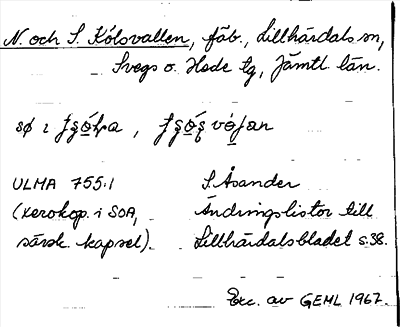 N. och S. Kölsvallen, fäb., Lillhärdals sn,
Svegs o. Hede tg, Jämtl. län.
ULMA 755:1 S. Åsander
(xerokop. i SOA, Ändringslistor till
särsk. kapsel). Lillhärdalsbladet s. 38.
Exc. av GEML 1967.